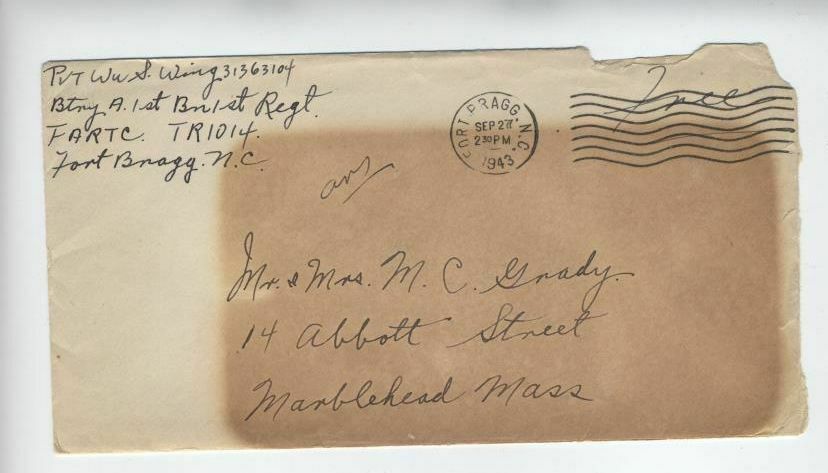 Pvt Wm S. Wing 31363104
Btry A. 1st Bn 1st Regt.
FARTC. TR1014.
Fort Bragg. N.C.
FORT BRAGG. N.C.
SEP 27
2 30 PM
1943
Free
Mr. & Mrs. M. C. Grady.
14 Abbott Street
Marblehead Mass